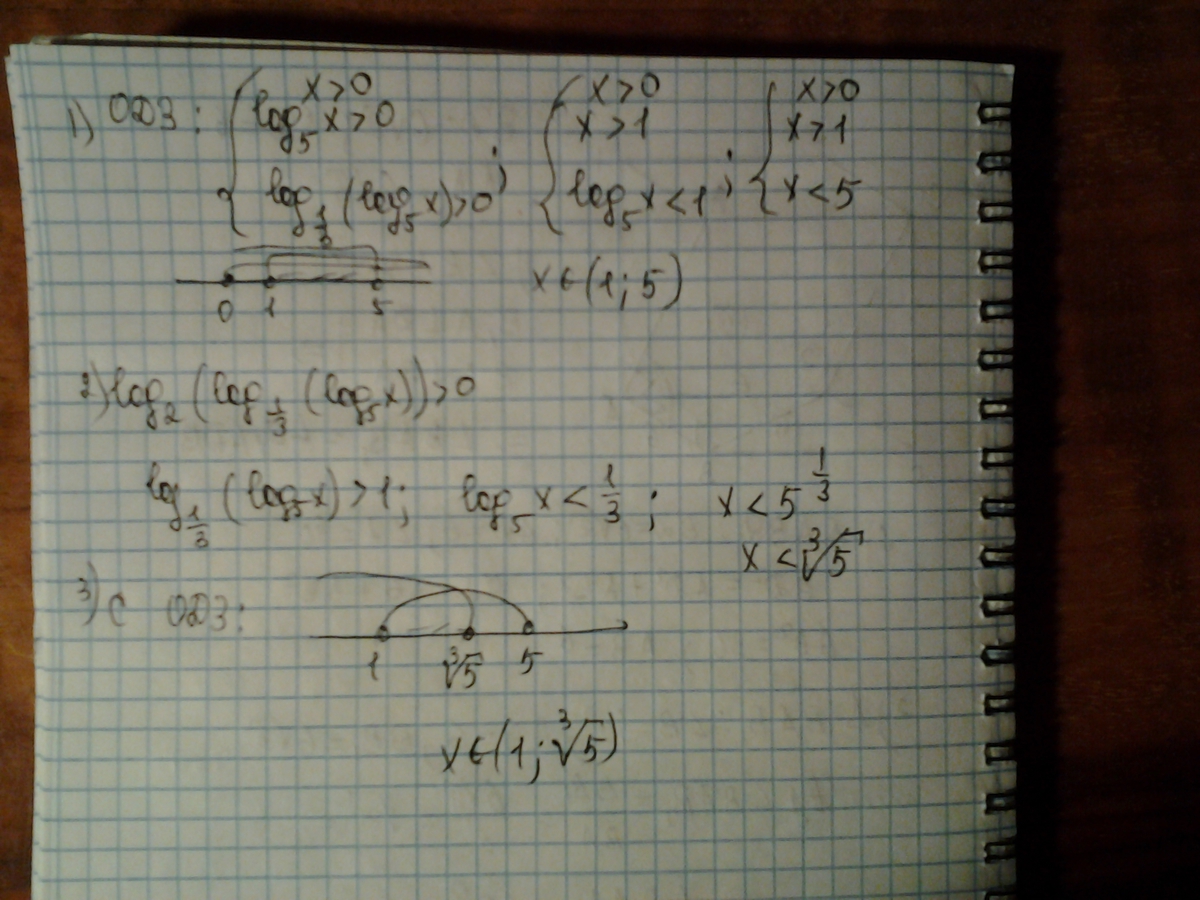 1) ОДЗ: { x>0 ; { x>0 ; { x>0
log₅x>0 x>1 x>1
log_{1/3}(log₅x)>0 log₅x<1 x<5
0 1 5 x∈(1;5)
2) log₂(log_{1/3}(log₅x))>0
log_{1/3}(log₅x)>1; log₅x<1/3; x<5^{1/3}
x<∛5
3) С ОДЗ:
1 ∛5 5
x∈(1;∛5)